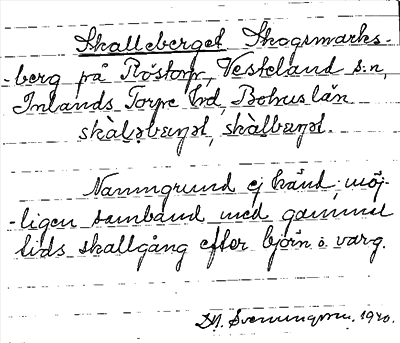 Skalleberget Skogsmarks-
-berg på Röstorp, Vesteland s:n,
Inlands Torpe hd, Bohuslän
Namngrund ej känd; möj-
-ligen samband med gammal
tids skallgång efter björn o. varg.
1940.